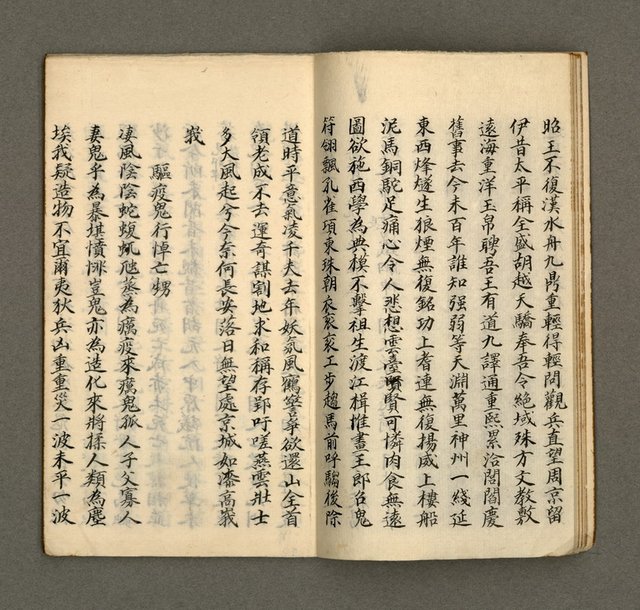 昭王不復漢水舟九鼎重輕得輕問觀兵直望周京留
伊昔太平稱全盛胡越天驕奉吾令絕域殊方文教敷
遠海重洋玉帛聘吾王有道九譯通重熙累洽閭閻慶
舊事去今未百年誰知強弱等天淵萬里神州一綫延
東西烽燧生狼煙無復銘功上耆連無復揚威上樓船
泥馬銅駝足痛心令人悲想雲臺賢可憐肉食無遠
圖欲施西學為典模不擊祖生渡江楫惟畫王郎召鬼
符翎飄孔雀項東珠朝衣袞袞亥工步趨馬前呼騶後除
道時平意氣凌千夫去年妖氛風鶴警辜欲還山全首
領老成不去運奇謀割地求和稱存鄞吁嗟燕雲壯士
多大風起兮今奈何長安落日無望處京城如漆高峩
峩
驅疫鬼行悼亡甥
淒風陰陰蛇蝮虺虺蒸為癘疫來癘鬼孤人子父寡人
妻鬼乎為暴堪憤悱豈鬼亦為造化來將揉人類為塵
埃我疑造物不宜爾夷狄兵凶重重災一波未平一波